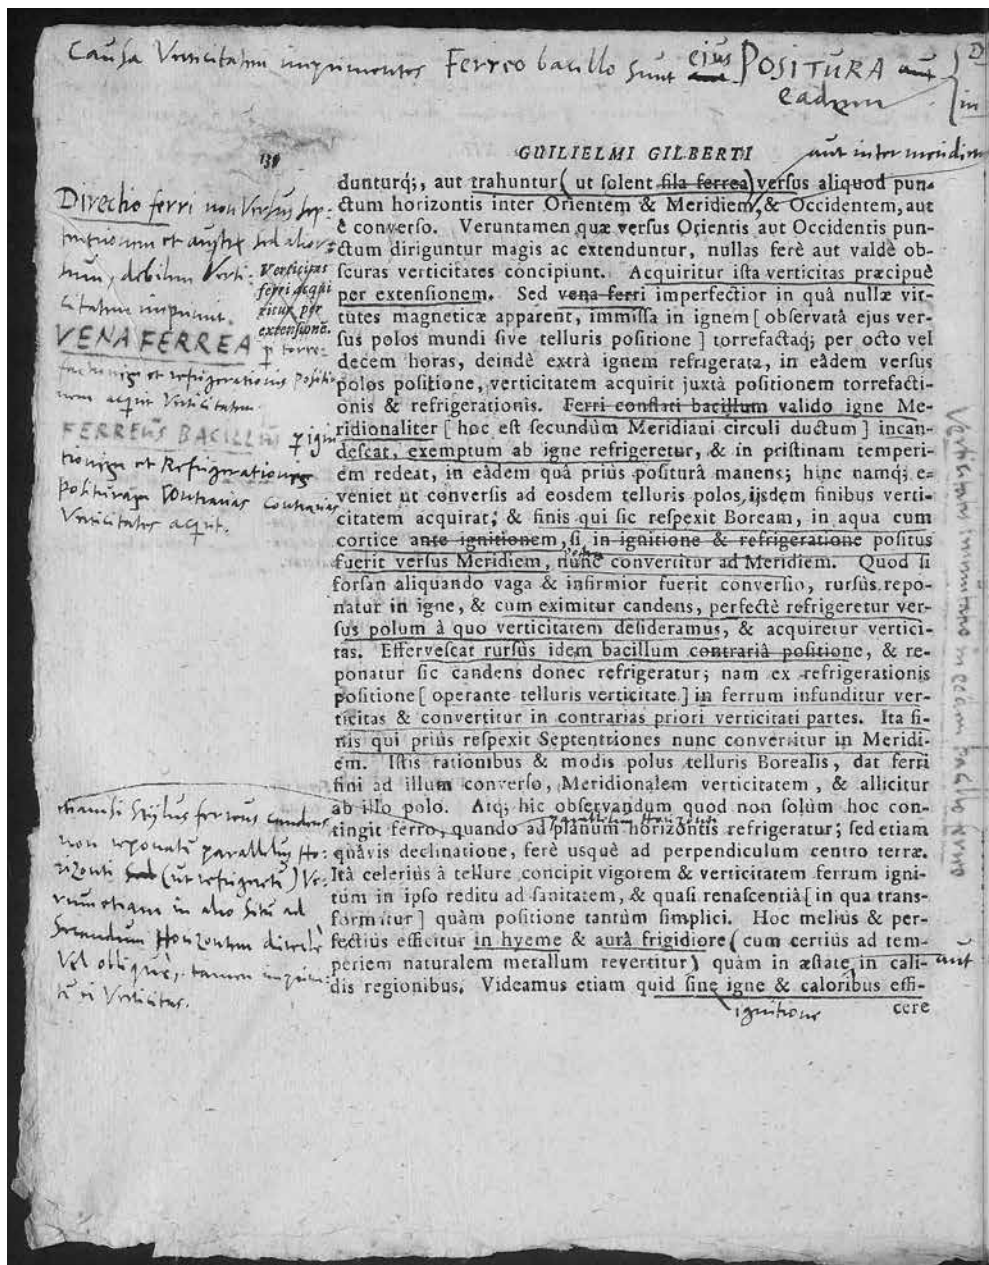 Causa Verticitatem imprimentes Ferreo bacillo sunt ejus POSITURA aut
eadem
in
GUILIELMI GILBERTI
aut inter meridiem
dunturq;, aut trahuntur ( ut solent fila ferrea) versus aliquod pun-
ctum horizontis inter Orientem & Meridiem, & Occidentem, aut
è converso. Veruntamen quæ versus Orientis aut Occidentis pun-
ctum diriguntur magis ac extenduntur, nullas ferè aut valdè ob-
scuras verticitates concipiunt. Acquiritur ista verticitas præcipuè
per extensionem. Sed vena ferri imperfectior in quâ nullæ vir-
tutes magneticæ apparent, immissa in ignem [ observatâ ejus ver-
sus polos mundi sive telluris positione ] torrefactaq; per octo vel
decem horas, deindè extrà ignem refrigerata, in eâdem versus
polos positione, verticitatem acquirit juxtà positionem torrefacti-
onis & refrigerationis. Ferri conflati bacillum valido igne Me-
ridionaliter [ hoc est secundùm Meridiani circuli ductum ] incan-
descat, exemptum ab igne refrigeretur, & in pristinam temperi-
em redeat, in eâdem quâ priùs positurâ manens; hinc namq; e-
veniet ut conversis ad eosdem telluris polos, ijsdem finibus verti-
citatem acquirat; & finis qui sic respexit Boream, in aqua cum
cortice ante ignitionem, si in ignitione & refrigeratione positus
fuerit versus Meridiem, nunc convertitur ad Meridiem. Quod si
forsan aliquando vaga & infirmior fuerit conversio, rursùs repo-
natur in igne, & cum eximitur candens, perfectè refrigeretur ver-
sus polum à quo verticitatem desideramus, & acquiretur vertici-
tas. Effervescat rursùs idem bacillum contrariâ positione, & re-
ponatur sic candens donec refrigeratur; nam ex refrigerationis
positione [ operante telluris verticitate ] in ferrum infunditur ver-
ticitas & convertitur in contrarias priori verticitati partes. Ita fi-
nis qui priùs respexit Septentriones nunc convertitur in Meridi-
em. Istis rationibus & modis polus telluris Borealis, dat ferri
fini ad illum converso, Meridionalem verticitatem, & allicitur
ab illo polo. Atq; hic observandum quod non solùm hoc con-
parallelum Horizonti
tingit ferro, quando ad planum horizontis refrigeratur; sed etiam
quâvis declinatione, ferè usquè ad perpendiculum centro terræ.
Ità celeriùs à tellure concipit vigorem & verticitatem ferrum igni-
tum in ipso reditu ad sanitatem, & quasi renascentiâ [ in qua trans-
formitur ] quàm positione tantùm simplici. Hoc melius & per-
fectius efficitur in hyeme & aurâ frigidiore ( cum certius ad tem-
periem naturalem metallum revertitur) quàm in æstate, in cali-
aut
dis regionibus. Videamus etiam quid sine igne & caloribus effi-
ignitione
cere
Directio ferri non Versus Sep-
tentrionem et austrum sed alior-
sum, debilem Verti-
citatem imprimit.
Verticitas
ferri acqui
ritur per
extensionē.
VENA FERREA
torre-
factionem et refrigerationis positio
nem acquirit Verticitatem.
FERREUS BACILLUS
tionem et Refrigerationem
Posituram Contrarias contrarias
Verticitates acquirit.
etiamsi Stylus ferreus candens
non reponatur parallelus Ho-
rizonti (ut refrigeretur) Ve-
rum etiam in alio Situ ad
Secundum Horizontem directè
Vel obliquè, tamen imprimi-
tur ei Verticitas.